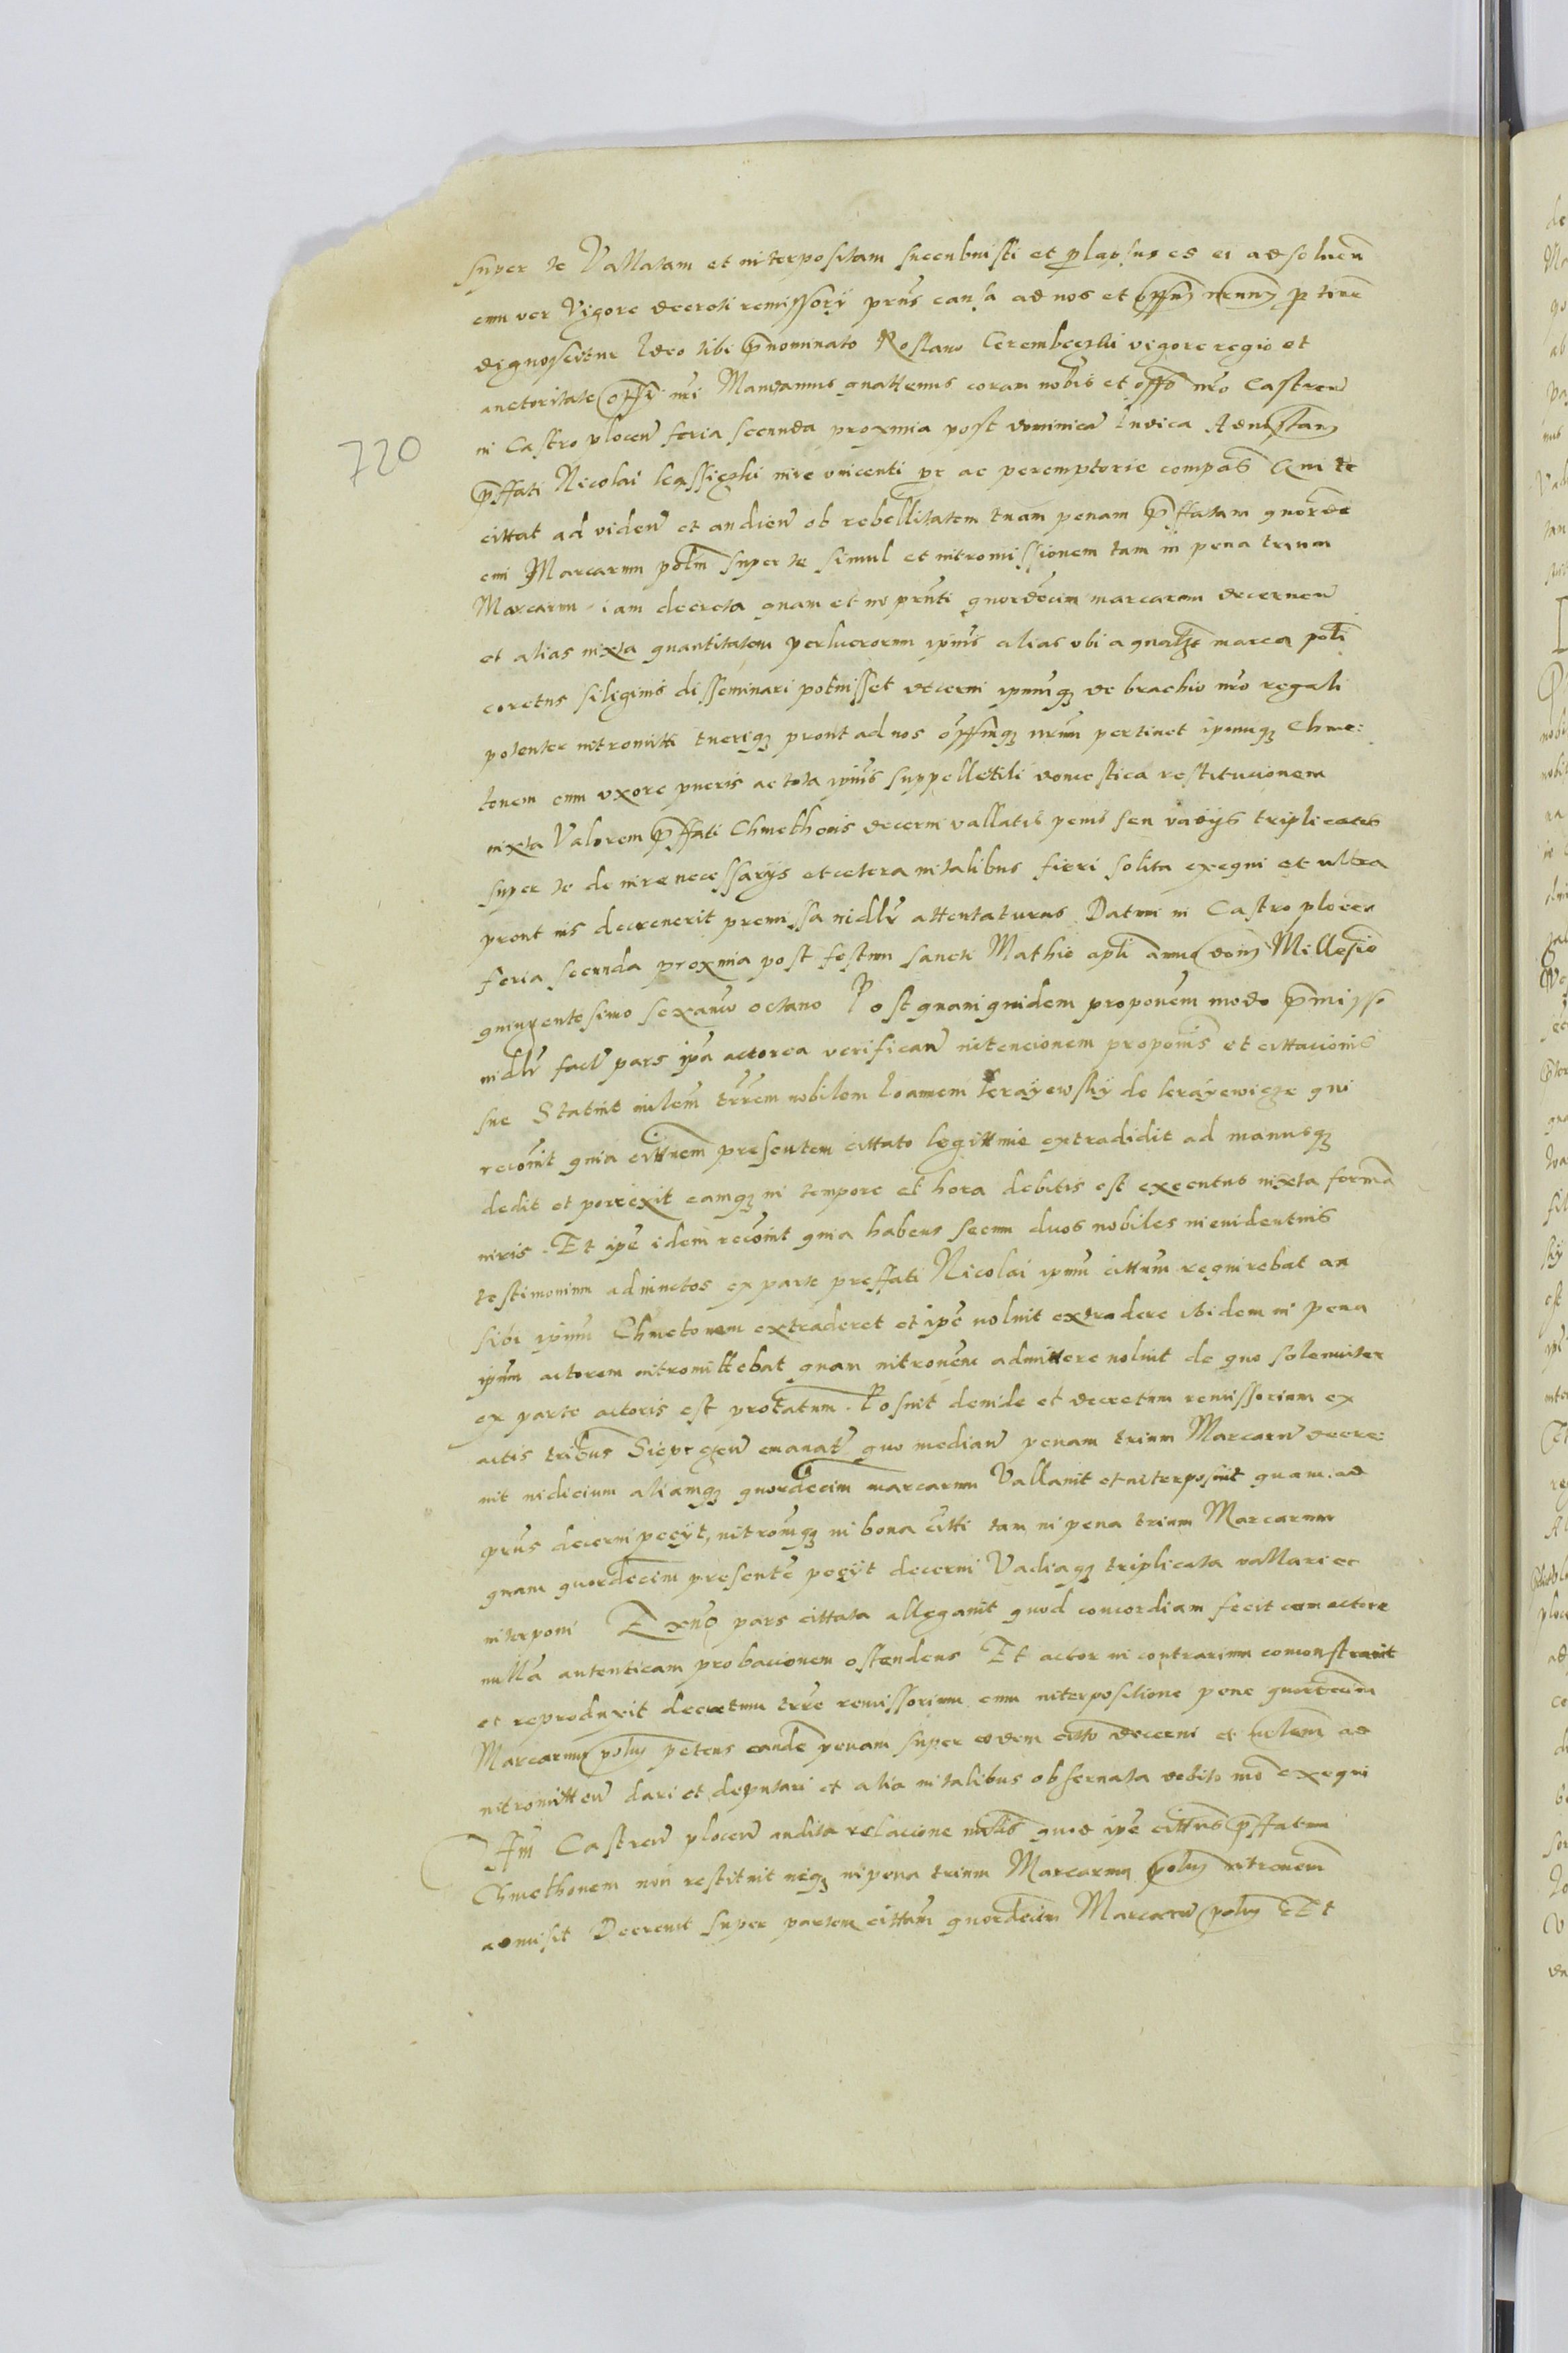 super te Vallatam et interpositam succubuisti et prolapsus es ei ad soluen
cum ver Vigore decreti remissorÿ prns causa ad nos et offm nrum ptiner
dignoscitur Ideo tibi prnominato Roslano Cerembeczki vigore regio et
auctoritate offi nri Mandamus quattenus coram nobis et offo nro Castren
in Castro plocen feria secunda proxima post dominica Iudica Ad instan
prffati Nicolai leassiczki iure vincenti pr ac peremptorie compas Qui te
cittat ad viden et audien ob rebellitatem tuam penam prffatam quorde
cim Marcarum polm super te simul et intromissionem tam in pena trium
Marcarum iam decreta quam et in prnti quordecim marcarum decernen
et alias iuxta quantitatem perlucrorum ipius alias vbi a qualzt marca poli
coretus siliginis disseminari potuisset decerni ipumqz de brachio nro regali
potenter intromitti tueriqz prout ad nos offmqz nrum pertinet ipumqz Chme:
tonem cum vxore pueris ac tota ipius suppellettili domestica restitucionem
iuxta Valorem prffati Chmethonis decerni vallatis penis seu vadÿs triplicatis
super te de iure necessarÿs et cetera in talibus fieri solita exequi et ultra
prout ius decreuerit premissa iudlr attentaturus Datum in Castro plocen
feria secunda proxima post festum sancti Mathie apli anno dom Millesio
quingentesimo sexanno octauo Post quamquidem proponem modo prmisso
iudlr fact pars ipa actorea verifican intencionem proponis et cittacionis
sue Statuit iulem trrem nobilem Ioannem kraÿewskÿ de kraÿewicze qui
recouit quia cittnem presentem cittato legittime extradidit ad manusqz
dedit et porrexit eamqz in tempore et hora debitis est executus iuxta forma
iuris. Et ipe idem recouit quia habens secum duos nobiles in euidentius
testimonium adiunctos ex parte preffati Nicolai ipum cittum requirebat an
sibi ipum Chmetonem extraderet et ipe noluit extradere ibidem in pena
ipum actorem intromittebat quam intronem admittere noluit de quo solemniter
ex parte actoris est protatum. Posuit deinde et decretum remissorium ex
actis tribus Sieprczen emanat quo median penam trium Marcarum decre:
uit iudicium aliamqz quordecim marcarum Vallauit et interposuit quam ad
prns decerni peciit, intromqz in bona citti tam in pena trium Marcarum
quam quordecim presente peciit decerni Vadiaqz triplicata vallari et
interponi Exno pars cittata allegauit quod concordiam fecit cum actore
nulla autenticam probacionem ostendens Et actor in contrarium comonstrauit
et reproduxit decretum trre remissorium cum interpositione pene quordecim
Marcarum polm petens eande penam super eodem citto decerni et iulem ad
intromitten dari et deputari et alia in talibus obseruata debito mo exequi
Ifm Castren plocen audita relacione iulis quod ipe cittus prffatum
Chmethonem non restituit neqz in pena trium Marcarum polm intronem
admisit Decreuit super partem cittam quordecim Marcarum polm Et
720